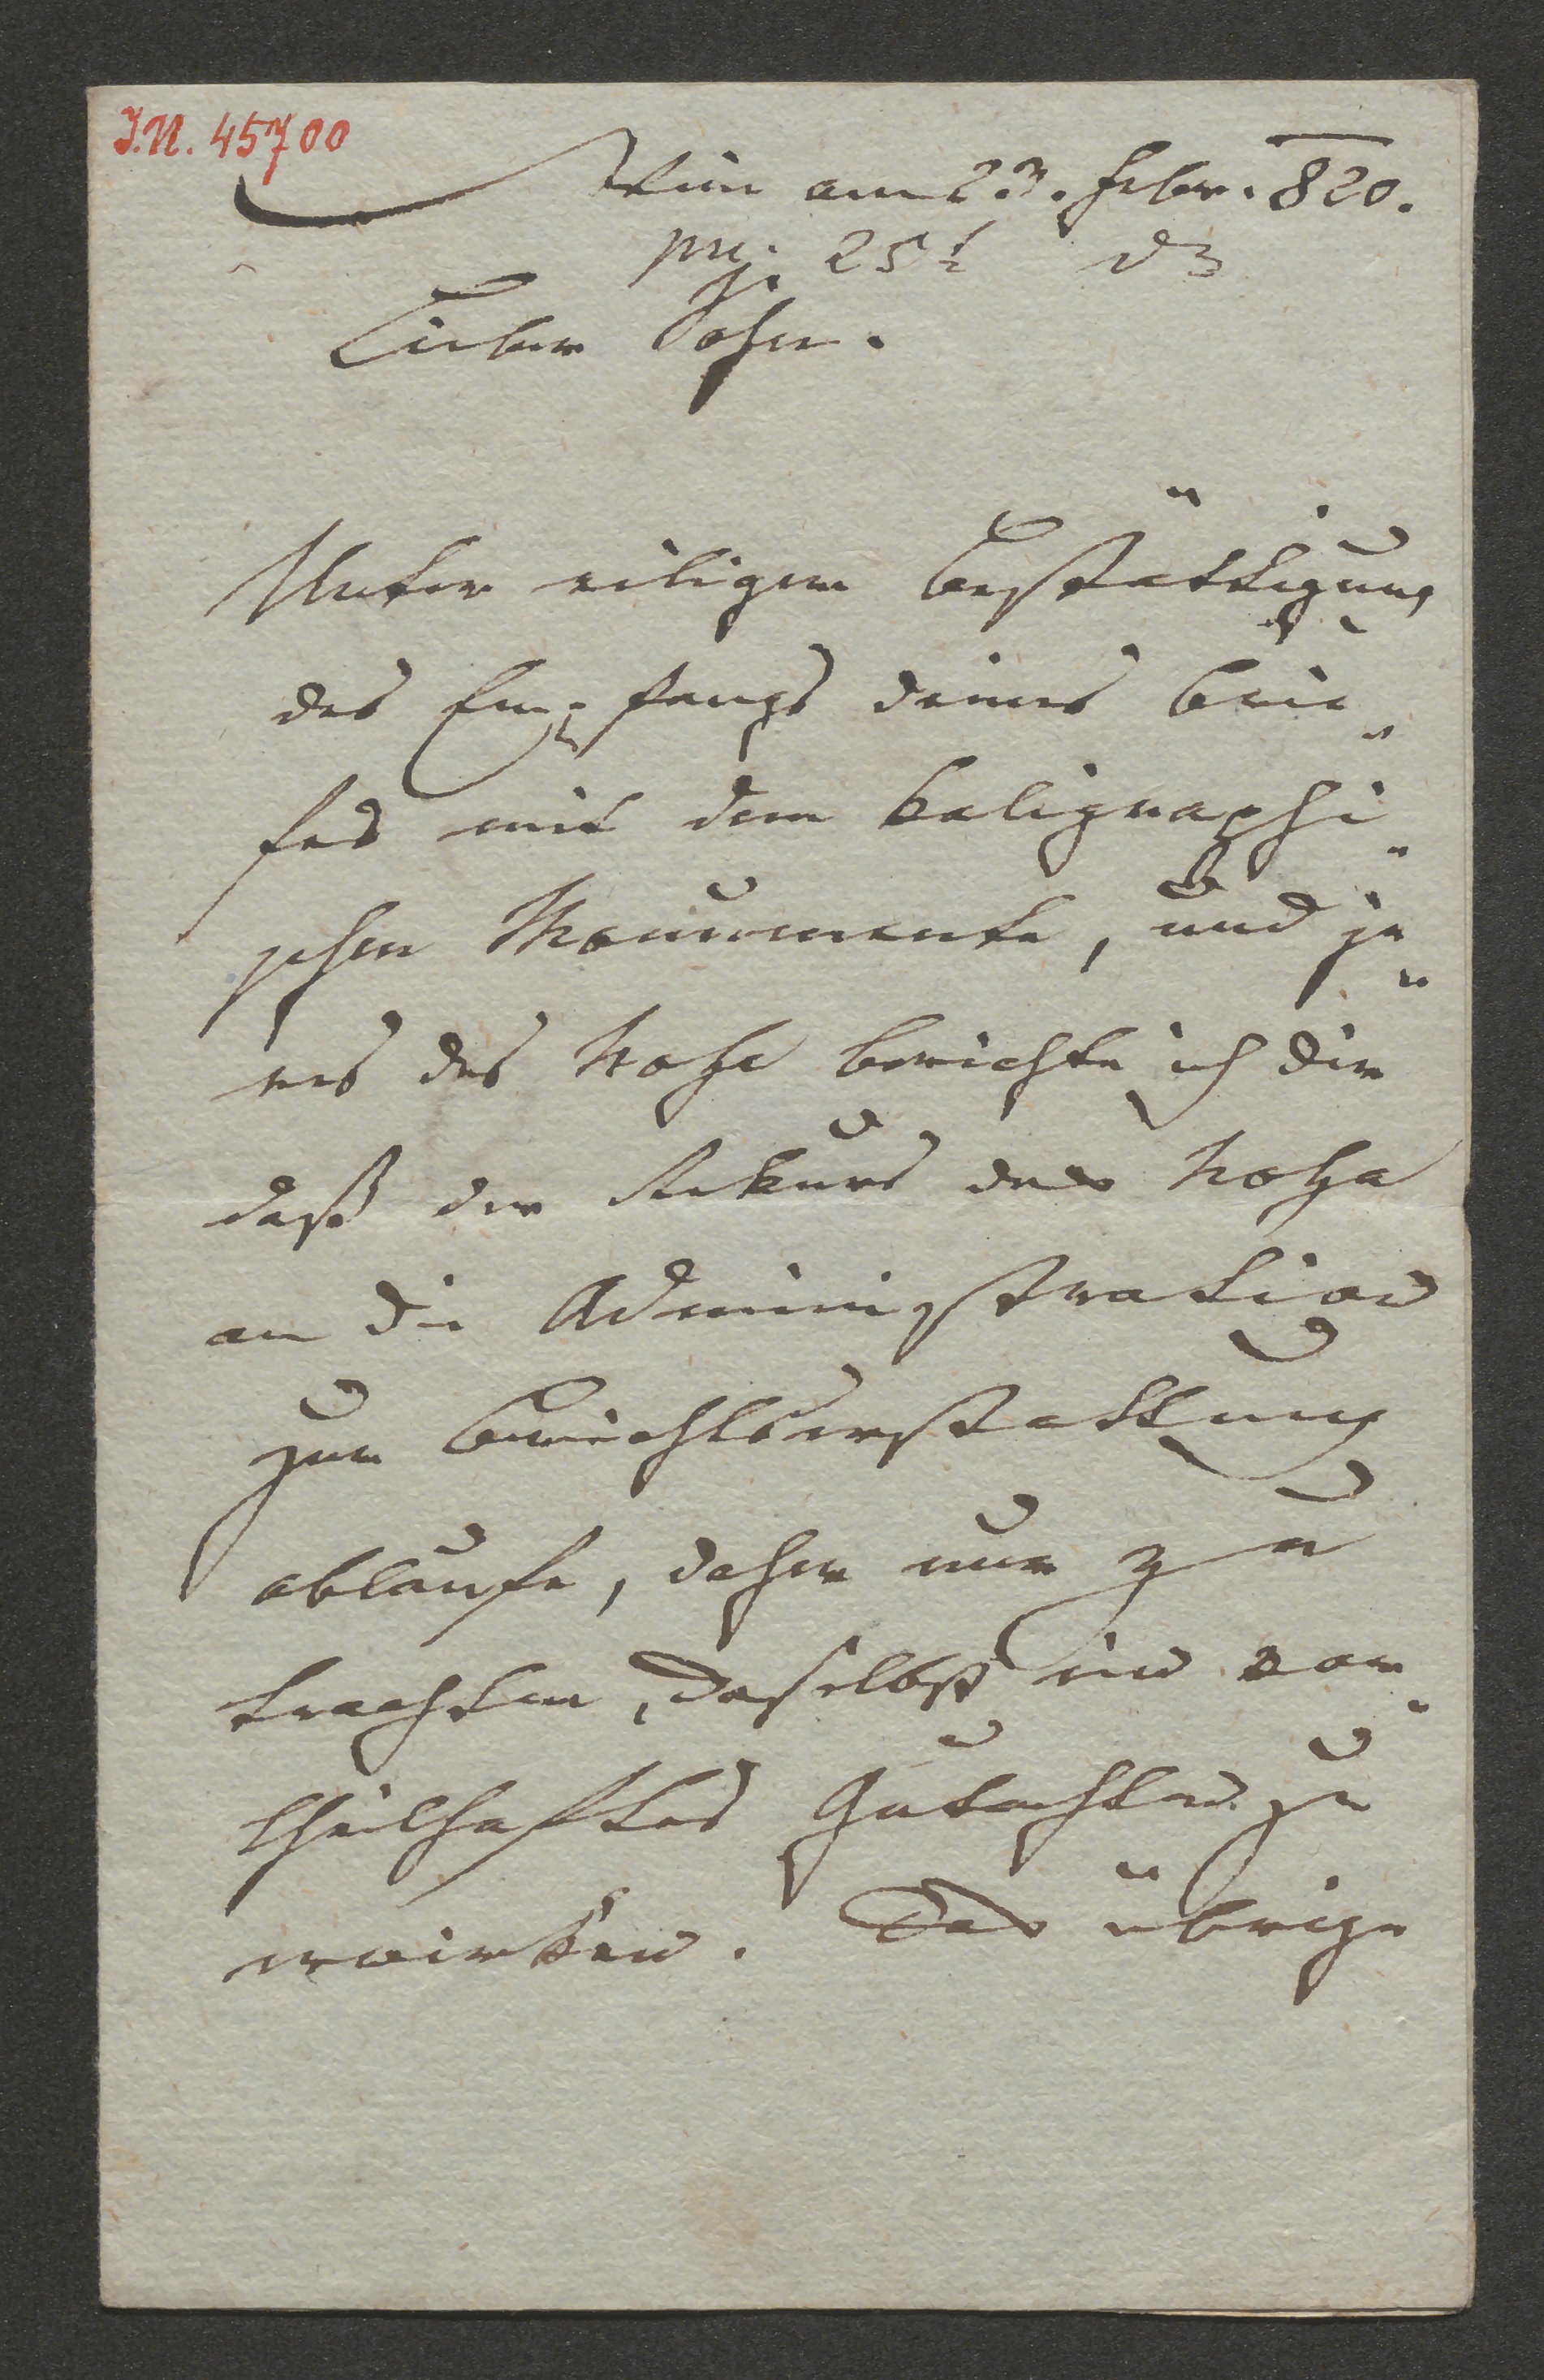 I.N. 45700
Wien am 23. Febr. 820.
25
Lieber Sohn.
Unter eiliger Bestättigung
des Empfangs deines Brie„
fes mit dem kaligraphi„
schen Monumente, und je„
nes des berichte ich dir
daß der Rekurs des
an die Administration
zur Berichtserstattung
ablaufe, daher nur zu
trachten, daselbst ein vor„
theilhaftes Gutachten zu
erwirken. Das übrige